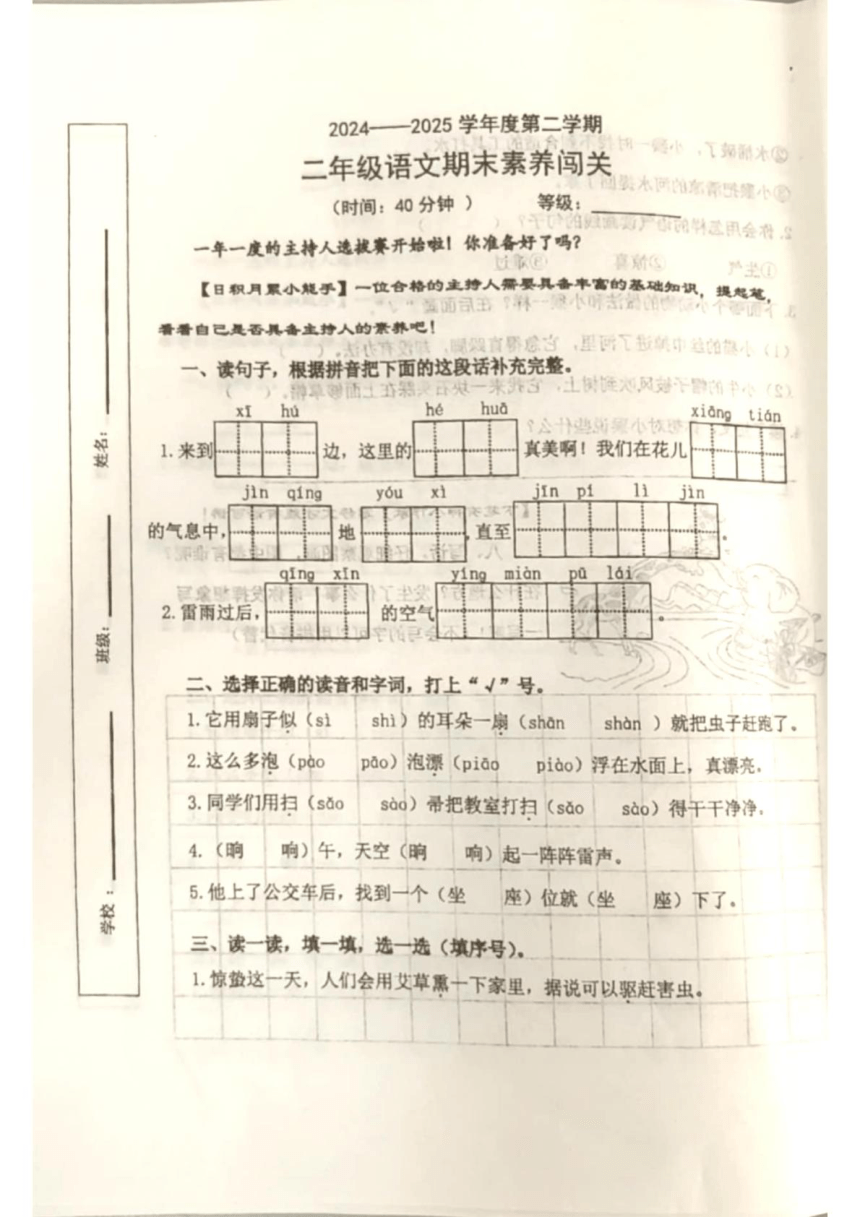 2024——2025 学年度第二学期
二年级语文期末素养闯关
（时间：40 分钟 ） 等级：
一年一度的主持人选拔赛开始啦！你准备好了吗？
【日积月累小能手】一位合格的主持人需要具备丰富的基础知识，提起笔，
看看自己是否具备主持人的素养吧！
一、读句子，根据拼音把下面的这段话补充完整。
xī hú hé huā xiāng tián
1.来到 边，这里的 真美啊！我们在花儿
jìn qíng yóu xì jīn pí lì jìn
的气息中， 地 ，直至 。
qīng xīn yíng miàn pū lái
2.雷雨过后， 的空气 。
二、选择正确的读音和字词，打上“√”号。
1.它用扇子似（sì shì）的耳朵一扇（shān shàn ）就把虫子赶跑了。
2.这么多泡（pào pāo）泡漂（piāo piào）浮在水面上，真漂亮。
3.同学们用扫（sǎo sào）帚把教室打扫（sǎo sào）得干干净净。
4.（晌 响）午，天空（晌 响）起一阵阵雷声。
5.他上了公交车后，找到一个（坐 座）位就（坐 座）下了。
三、读一读，填一填，选一选（填序号）。
1.惊蛰这一天，人们会用艾草熏一下家里，据说可以驱赶害虫。
姓名：
班级：
学校：